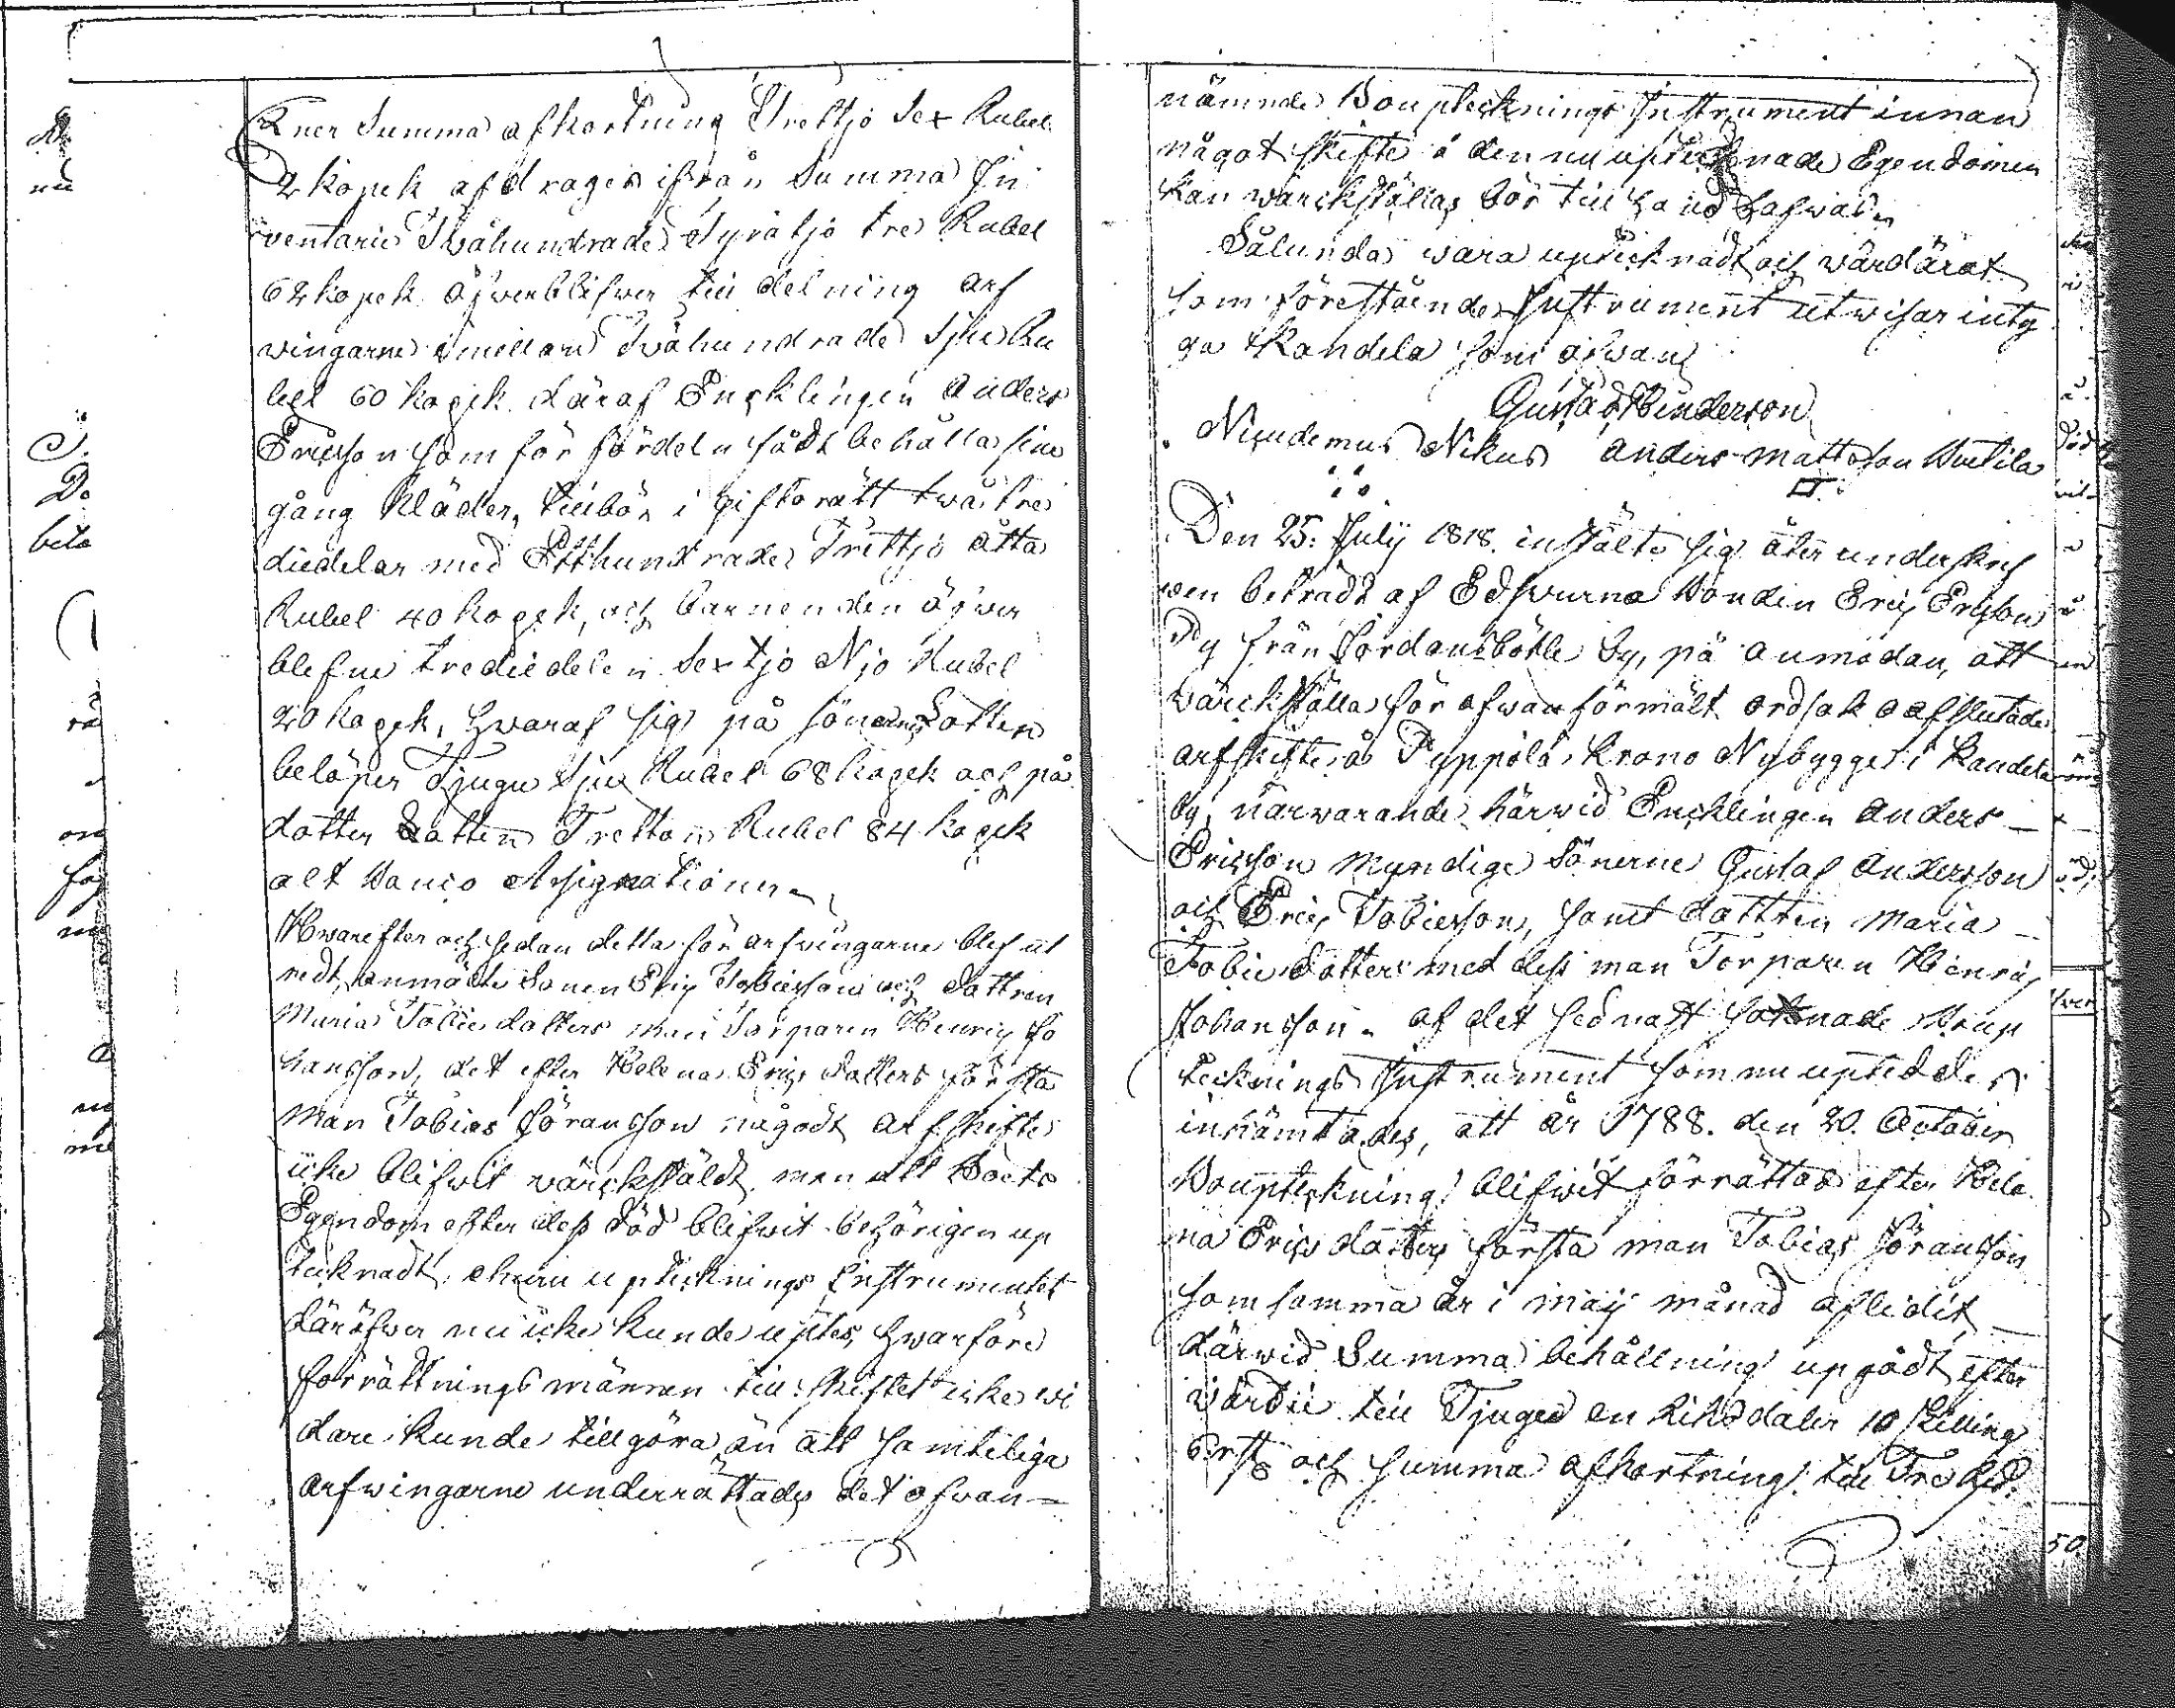 Enär Summa afkortning Trettjo Sex Rubel
2 kopek afdrages ifrån Summa In
ventarie Twåhundrade Fyratjo tre Rubel
62 kopek öfwerblifwer till delning arf
wingarne imellan Twåhundrade Sju Ru
bel 60 kopek. däraf Encklingen Anders
Ericsson som för fördeln fådt behålla sine
gång kläder, tillbör i giftorätt twå tre
diedelar med Etthundrade Trettjo åtta
Rubel 40 kopek, och barnen den öfwer
blefne trediedelen Sextjo Njo Rubel
20 kopek, hwaraf sig på söne Lotten
belöper Tjugu Sju Rubel 68 kopek och på
dotter Lotten Tretton Rubel 84 kopek
alt Banco Assignationer
Hwarefter och sedan detta för arfwingarne blef ut
redt, anmälte Sonen Eric Tobiesson och dottren
Maria Tobiedotters man Torparen Henric Jo
hansson, det efter Helena Erics dotters första
man Tobias Göransson någodt arfskifte
icke blifwit wärckstäldt, men att Boets
Egendom efter dess död blifwit behörigen up
tecknadt, ehuru uptecknings Instrumentet
däröfwer nu icke kunde uptes, hwarföre
förrättningsmännen till skiftet icke wi
dare kunde tillgöra än att samteliga
arfwingarne underrättades det ofwan
nämnde Bouptecknings Instrument innan
något skifte å den nu uptecknade Egendomen
kan wärckställas bör till hand hafwas
Sålunda wara uptecknadt och wärdärat
som förestående Instrument utwisar intyg
ga Kandela som ofwan
Gustaf Henderson
Nicudemus Nikus Anders Mattsson
Den 25. Julij 1818. instälte sig åter underskref
wen beträdt af Edswurna Bonden Eric Ericsson
By från Jordansböhle by, på anmodan, att
wärckställa för ofwanförmält ordsak oafslutade
arfskifte å Pyppölä krono Nybygge i Kandela
by, närwarande härwid Encklingen Anders
Ericsson Myndige Sönerne Gustaf Andersson
och Eric Tobiesson, samt dottren Maria
Tobiedotter med dess man Torparen Henric
Johansson. af det sednast saknade Boup
tecknings Instrument som nu uptedde
inhämtades, att år 1788. den 20. October
Bouptekning blifwit förrättad efter Hele
na Erics dotters första man Tobias Göransson
som samma år i Maij månad aflidit
därwid Summa behållning upgådt efter
wärdie till Tjugu en Riksdaler 10 skilling
och Summa afkortning till Tre Rd.